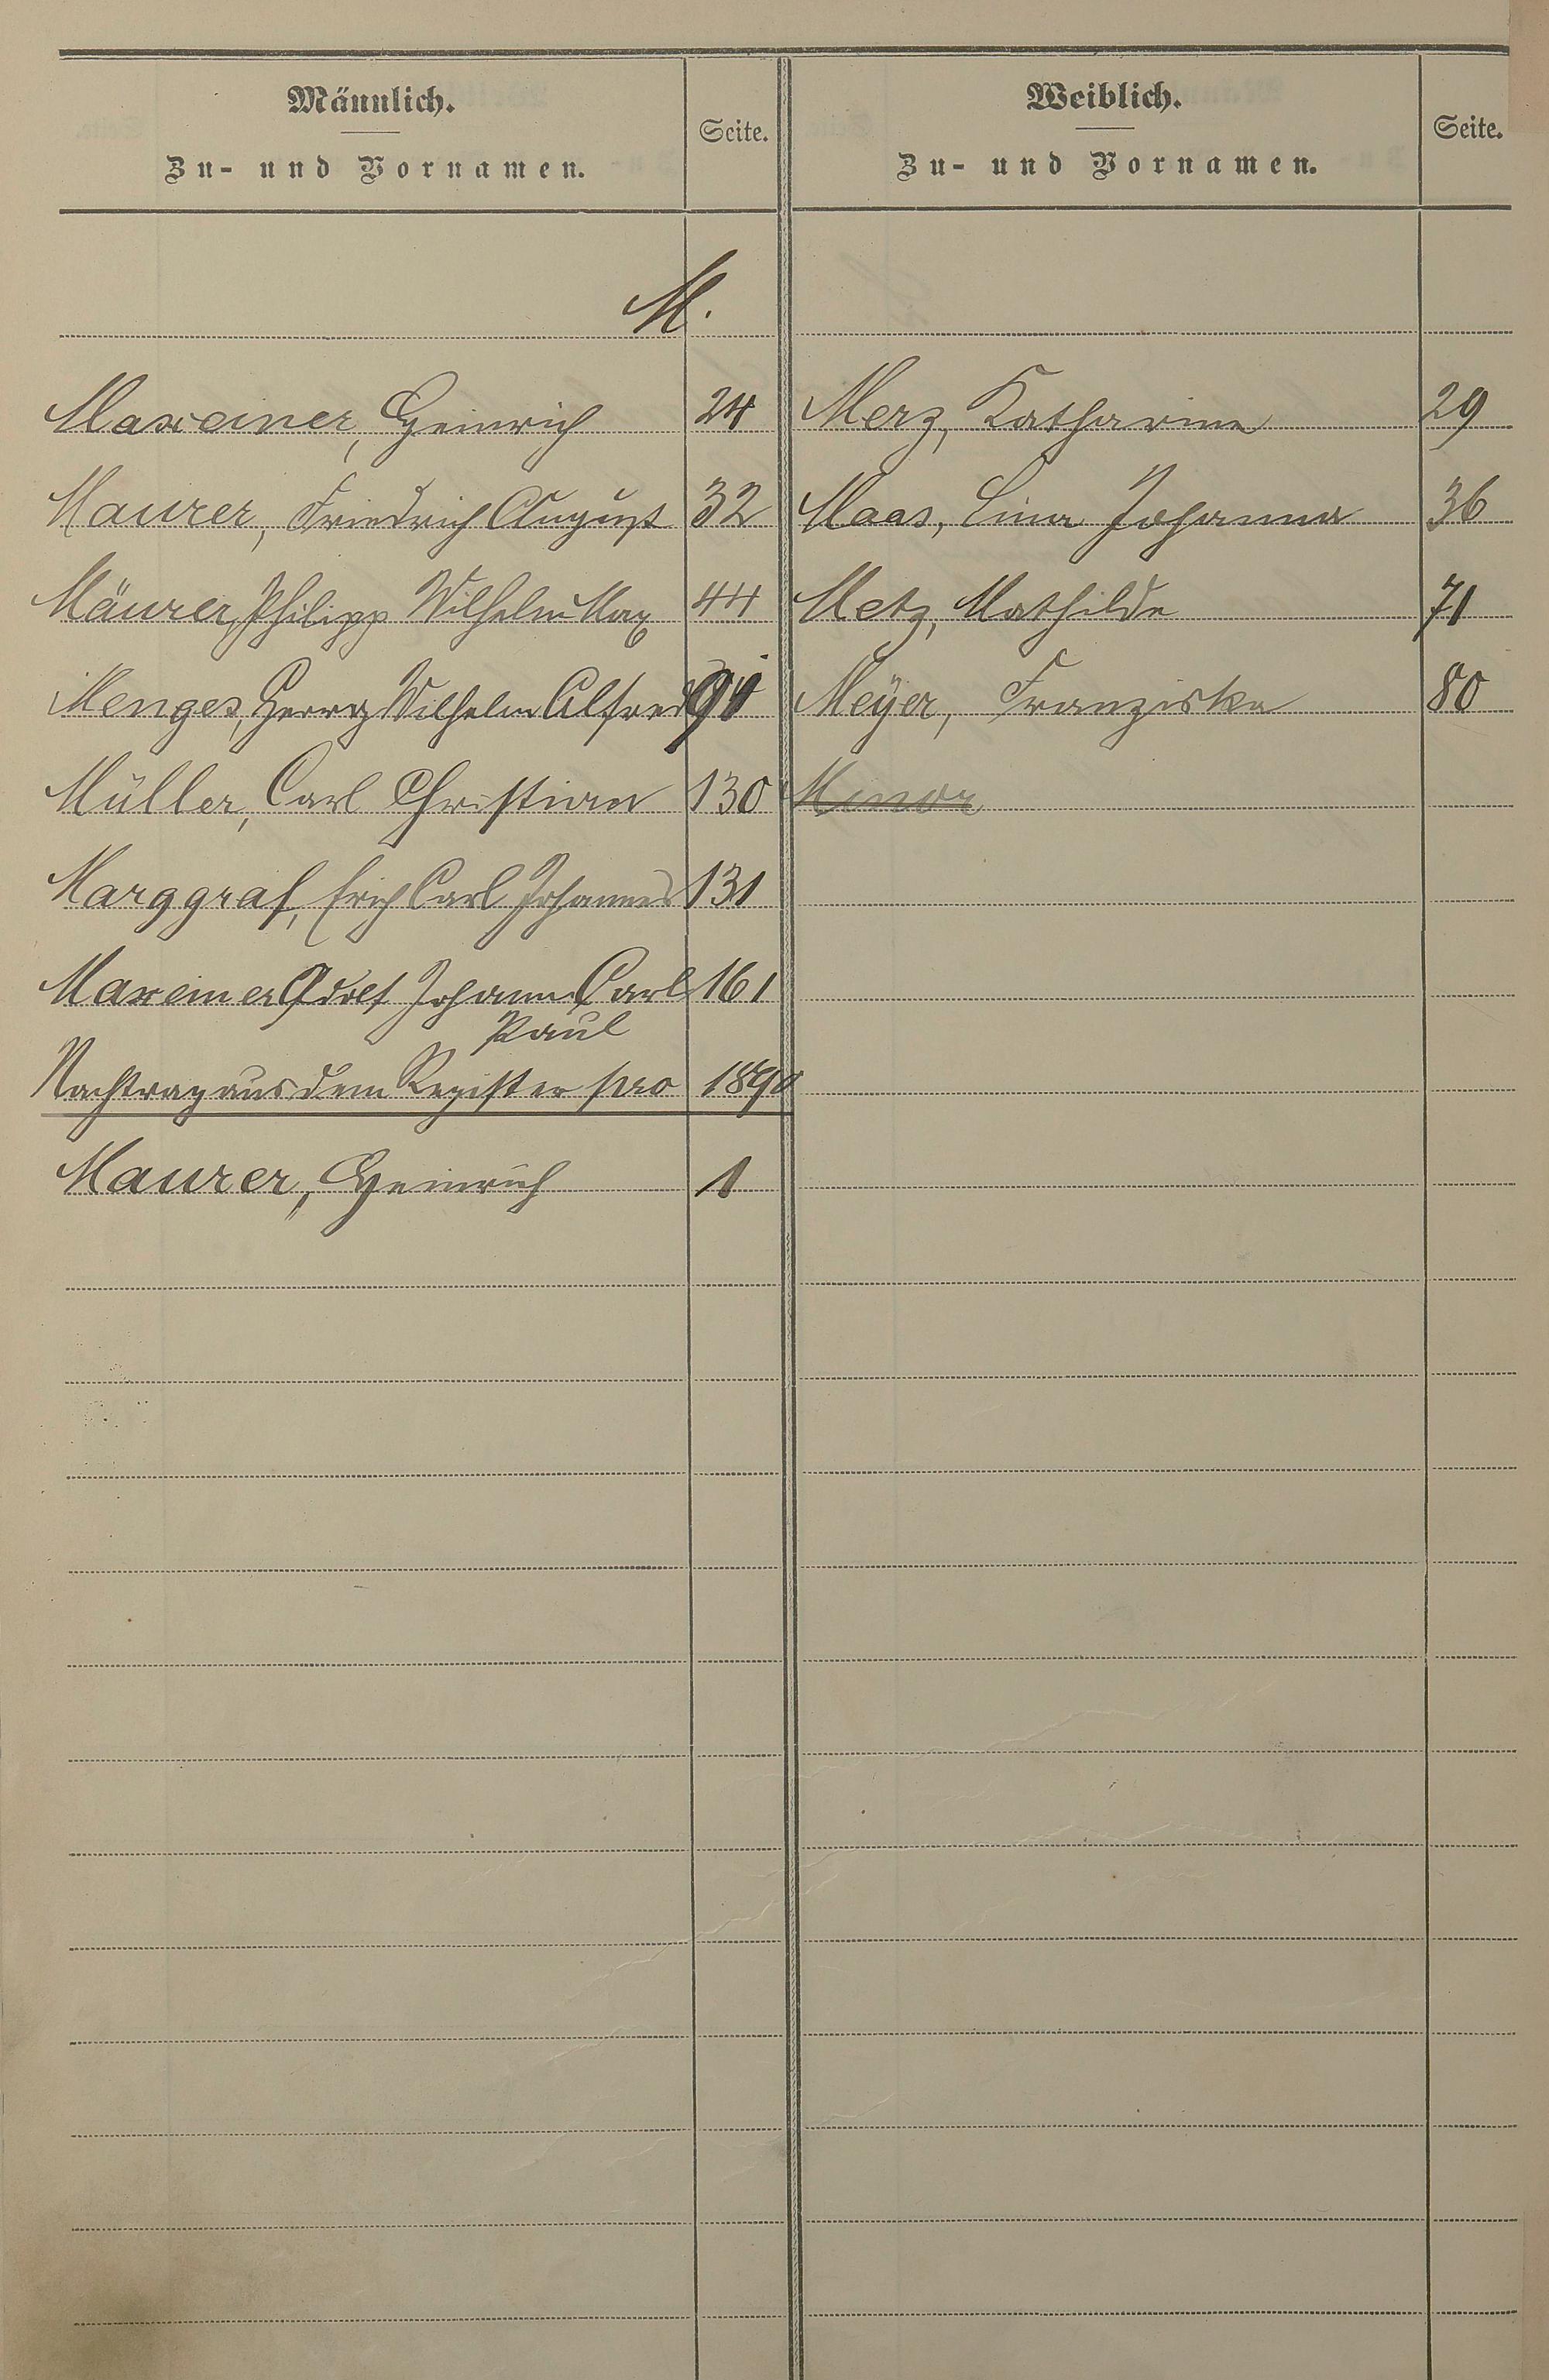 Männlich.
Zu- und Vornamen.
Seite.
Weiblich.
Zu- und Vornamen.
Seite.
M.
Maxeiner, Heinrich 24
Maurer, Friedrich August 32
Mäurer, Philipp Wilhelm Max 44
Menges, Georg Wilhelm Alfred 90
Müller, Carl Christian 130
Marggraf, Erich Carl Johannes 131
Maxeiner Adolf Johann Carl 161
Paul
Nachtrag aus dem Register pro 1890
Maurer, Heinrich 1
Merz, Katharina 29
Maas, Lina Johanna 36
Metz, Mathilde 71
Meÿer, Franziska 80
Minor